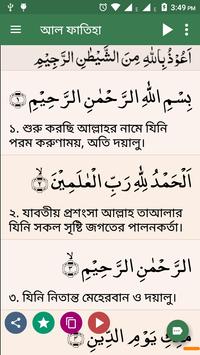 3:49 PM
আল ফাতিহা
اَعُوْذُ بِاللّٰهِ مِنَ الشَّيْطٰنِ الرَّجِيْمِ
بِسْمِ اللّٰهِ الرَّحْمٰنِ الرَّحِيْمِ ﴿١﴾
১. শুরু করছি আল্লাহর নামে যিনি
পরম করুণাময়, অতি দয়ালু।
اَلْحَمْدُ لِلّٰهِ رَبِّ الْعٰلَمِيْنَ ﴿٢﴾
২. যাবতীয় প্রশংসা আল্লাহ তাআলার
যিনি সকল সৃষ্টি জগতের পালনকর্তা।
الرَّحْمٰنِ الرَّحِيْمِ ﴿٣﴾
৩. যিনি নিতান্ত মেহেরবান ও দয়ালু।
مٰلِكِ يَوْمِ الدِّيْنِ